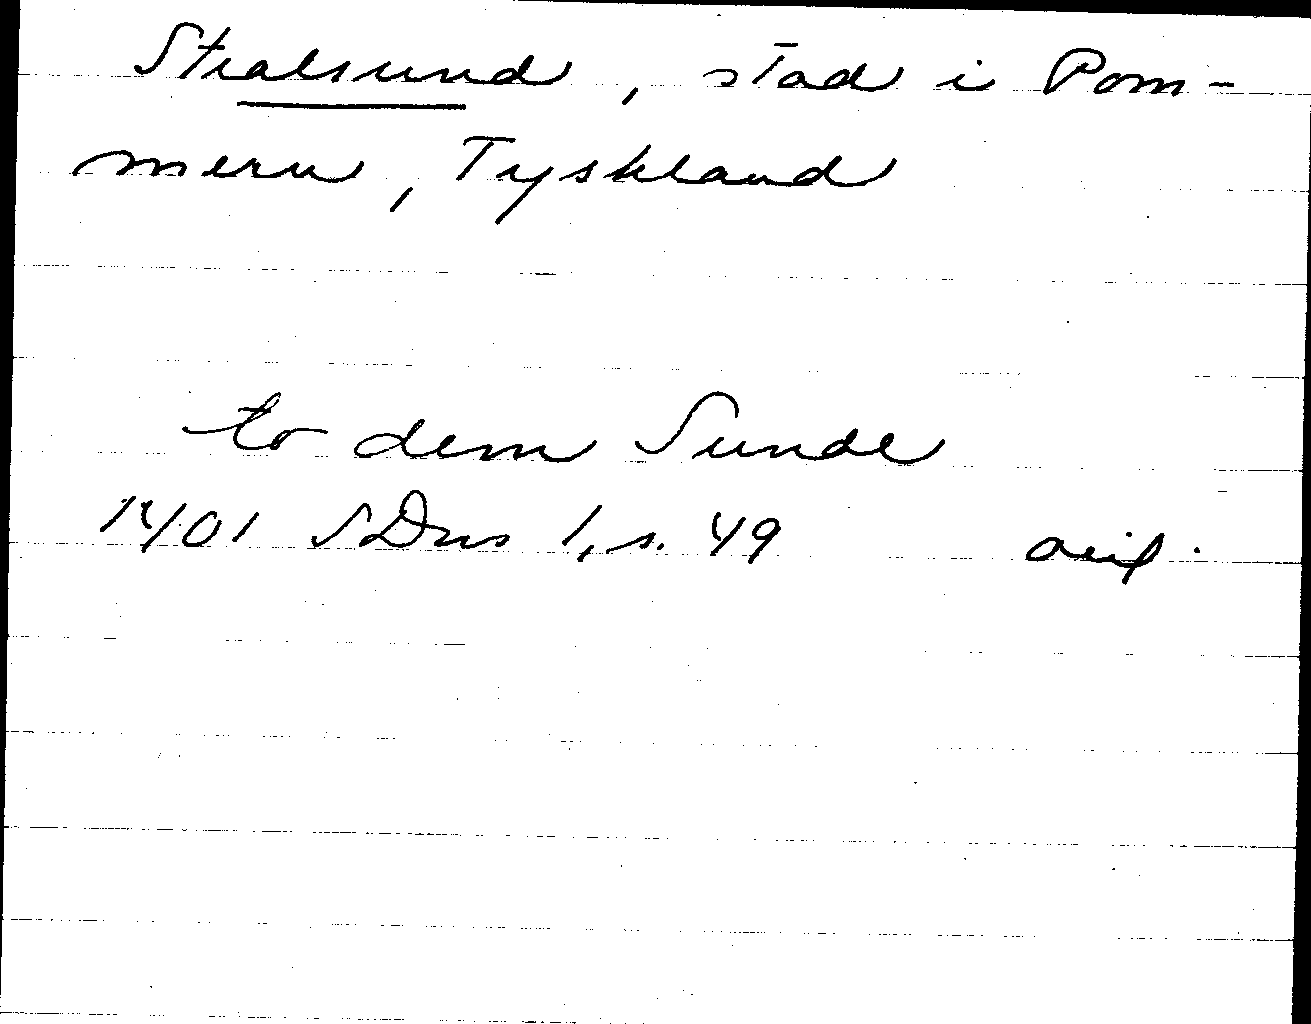 Stralsund, stad i Pom-
mern, Tyskland
to dem Sunde
1401 SDns 1, s. 49 avil.